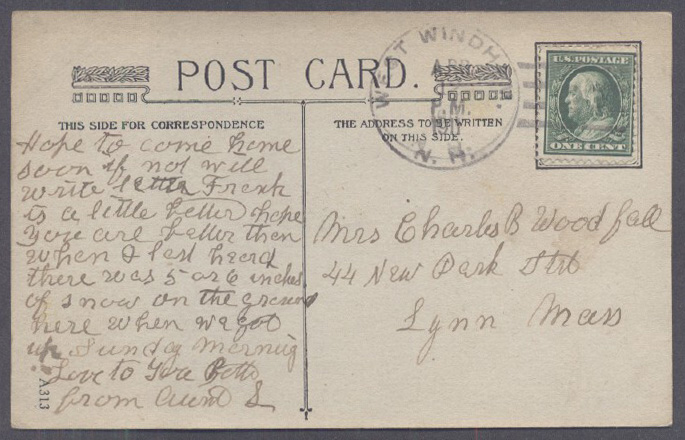 POST CARD.
THIS SIDE FOR CORRESPONDENCE
THE ADDRESS TO BE WRITTEN
ON THIS SIDE.
WEST WINDH
APR
P.M.
N. H.
U.S. POSTAGE
ONE CENT
Hope to come home
soon if not will
write letter Frank
is a little better hope
you are better then
when I last heard
there was 5 or 6 inches
of snow on the ground
here when we got
up Sunday Morning
Love to Betts
from Aunt S
Mrs Charles B Woodfall
44 New Park Strt
Lynn Mass
A313